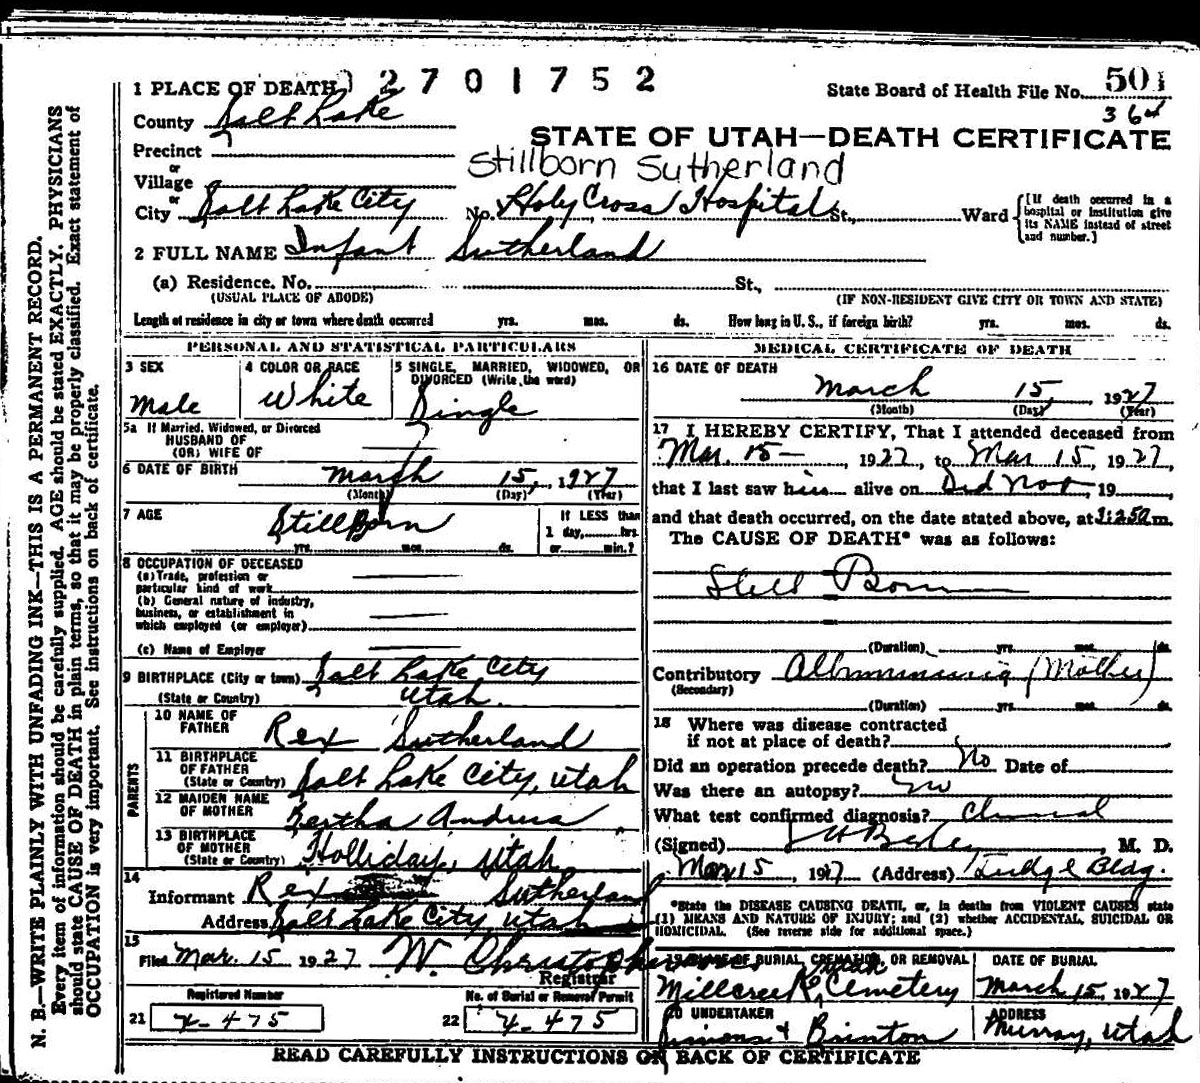 1 PLACE OF DEATH 2701752 State Board of Health File No. 501
364
County Salt Lake
STATE OF UTAH—DEATH CERTIFICATE
Precinct
Stillborn Sutherland
or
Village
or
City Salt Lake City No. Holy Cross Hospital St., Ward [If death occurred in a hospital or institution give its NAME instead of street and number.]
2 FULL NAME Infant Sutherland
(a) Residence. No. St.,
(USUAL PLACE OF ABODE) (IF NON-RESIDENT GIVE CITY OR TOWN AND STATE)
Length of residence in city or town where death occurred yrs. mos. ds. How long in U. S., if foreign birth? yrs. mos. ds.
PERSONAL AND STATISTICAL PARTICULARS
3 SEX 4 COLOR OR RACE 5 SINGLE, MARRIED, WIDOWED, OR
DIVORCED (Write the word)
Male White Single
5a If Married, Widowed, or Divorced
HUSBAND OF
(OR) WIFE OF
6 DATE OF BIRTH March 15, 1927
(Month) (Day) (Year)
7 AGE StillBorn If LESS than
1 day, hrs.
yrs. mos. ds. or min.?
8 OCCUPATION OF DECEASED
(a) Trade, profession or
particular kind of work
(b) General nature of industry,
business, or establishment in
which employed (or employer)
(c) Name of Employer
9 BIRTHPLACE (City or town) Salt Lake City
(State or Country) Utah.
PARENTS
10 NAME OF
FATHER Rex Sutherland
11 BIRTHPLACE
OF FATHER
(State or Country) Salt Lake City, Utah
12 MAIDEN NAME
OF MOTHER
13 BIRTHPLACE
OF MOTHER
(State or Country) Holliday, Utah
14
Informant Rex Sutherland
Address Salt Lake City, Utah
15
Filed Mar. 15 1927 W. Christopherson
Registrar
Registered Number No. of Burial or Removal Permit
21 4-475 22 4-475
MEDICAL CERTIFICATE OF DEATH
16 DATE OF DEATH
March 15, 1927
(Month) (Day) (Year)
17 I HEREBY CERTIFY, That I attended deceased from
Mar. 15 — , 1927, to Mar 15, 1927,
that I last saw him alive on Did not, 19 ,
and that death occurred, on the date stated above, at m.
The CAUSE OF DEATH* was as follows:
Still Born
(Duration) yrs. mos. ds.
Contributory (Mother)
(Secondary)
(Duration) yrs. mos. ds.
18 Where was disease contracted
if not at place of death?
Did an operation precede death? No Date of
Was there an autopsy? No
What test confirmed diagnosis? Clinical
(Signed) , M. D.
Mar 15, 1927 (Address) Judge Bldg.
*State the DISEASE CAUSING DEATH, or, in deaths from VIOLENT CAUSES state
(1) MEANS AND NATURE OF INJURY; and (2) whether ACCIDENTAL, SUICIDAL OR
HOMICIDAL. (See reverse side for additional space.)
19 PLACE OF BURIAL, CREMATION, OR REMOVAL DATE OF BURIAL
Utah
Millcreek, Cemetery March 15, 1927
20 UNDERTAKER ADDRESS
& Brinton Murray, Utah
READ CAREFULLY INSTRUCTIONS ON BACK OF CERTIFICATE
N. B.—WRITE PLAINLY WITH UNFADING INK—THIS IS A PERMANENT RECORD.
Every item of information should be carefully supplied. AGE should be stated EXACTLY. PHYSICIANS
should state CAUSE OF DEATH in plain terms, so that it may be properly classified. Exact statement of
OCCUPATION is very important. See instructions on back of certificate.